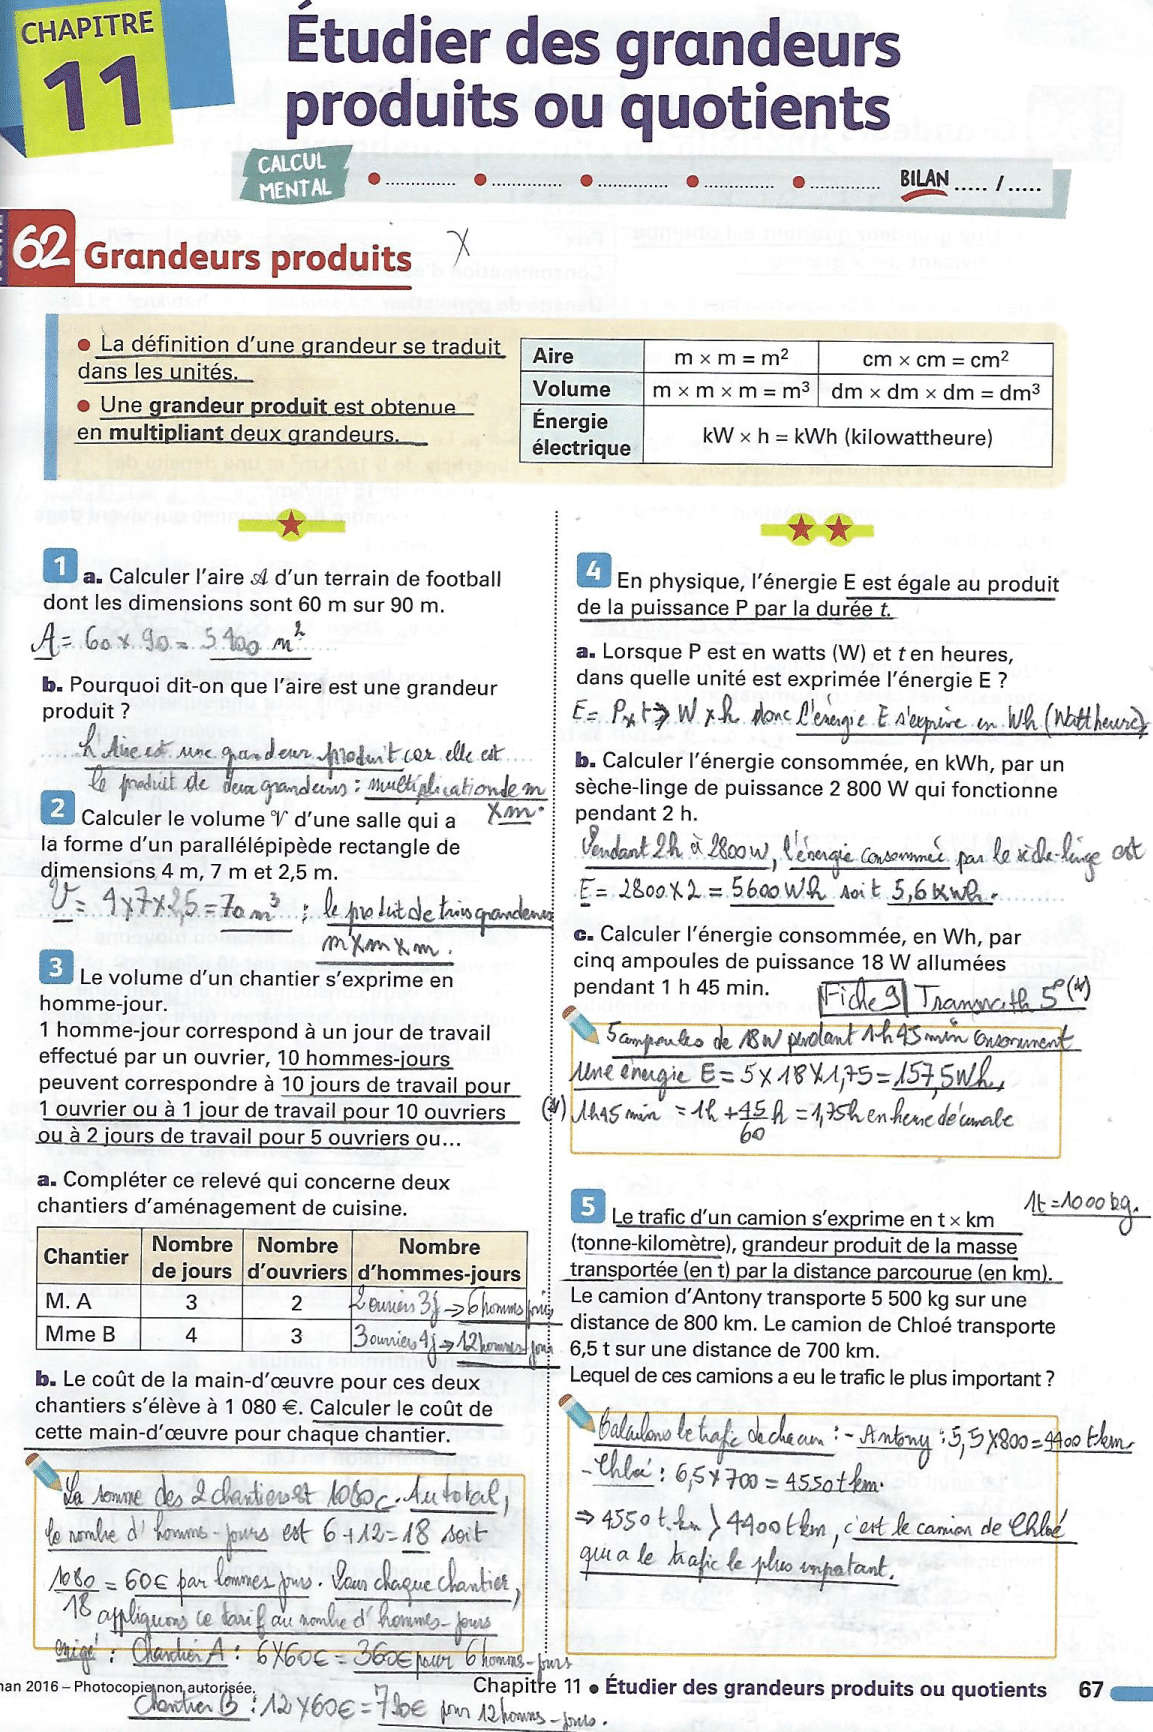 CHAPITRE
11
Étudier des grandeurs
produits ou quotients
CALCUL
MENTAL
BILAN ..... / .....
62 Grandeurs produits X
• La définition d'une grandeur se traduit
dans les unités.
• Une grandeur produit est obtenue
en multipliant deux grandeurs.
Aire m × m = m² cm × cm = cm²
Volume m × m × m = m³ dm × dm × dm = dm³
Énergie
électrique kW × h = kWh (kilowattheure)
1 a. Calculer l'aire A d'un terrain de football
dont les dimensions sont 60 m sur 90 m.
A = 60 x 90 = 5400 m²
b. Pourquoi dit-on que l'aire est une grandeur
produit ?
L'Aire est une grandeur produit car elle est
le produit de deux grandeurs : multiplication de m
x m.
2 Calculer le volume V d'une salle qui a
la forme d'un parallélépipède rectangle de
dimensions 4 m, 7 m et 2,5 m.
V = 4x7x2,5 = 70 m³ : le produit de trois grandeurs
m x m x m.
3 Le volume d'un chantier s'exprime en
homme-jour.
1 homme-jour correspond à un jour de travail
effectué par un ouvrier, 10 hommes-jours
peuvent correspondre à 10 jours de travail pour
1 ouvrier ou à 1 jour de travail pour 10 ouvriers
ou à 2 jours de travail pour 5 ouvriers ou...
a. Compléter ce relevé qui concerne deux
chantiers d'aménagement de cuisine.
Chantier Nombre de jours Nombre d'ouvriers Nombre d'hommes-jours
M. A 3 2 2 ouvriers 3j → 6 hommes jours
Mme B 4 3 3 ouvriers 4j → 12 hommes-jours
b. Le coût de la main-d'œuvre pour ces deux
chantiers s'élève à 1 080 €. Calculer le coût de
cette main-d'œuvre pour chaque chantier.
La somme des 2 chantiers est 1080€. Au total,
le nombre d'hommes-jours est 6+12=18 soit
1080/18 = 60€ par hommes jours. Pour chaque chantier,
appliquons ce tarif au nombre d'hommes-jours
exigé : Chantier A : 6x60€ = 360€ pour 6 hommes-jours
Chantier B : 12x60€ = 720€ pour 12 hommes-jours.
4 En physique, l'énergie E est égale au produit
de la puissance P par la durée t.
a. Lorsque P est en watts (W) et t en heures,
dans quelle unité est exprimée l'énergie E ?
E = P x t → W x h donc l'énergie E s'exprime en Wh (Wattheure)
b. Calculer l'énergie consommée, en kWh, par un
sèche-linge de puissance 2 800 W qui fonctionne
pendant 2 h.
Pendant 2h à 2800W, l'énergie consommée par le sèche-linge est
E = 2800 x 2 = 5600 Wh soit 5,6 kWh.
c. Calculer l'énergie consommée, en Wh, par
cinq ampoules de puissance 18 W allumées
pendant 1 h 45 min. Fiche 9 Transmath 5° (*)
5 ampoules de 18W pendant 1h45min consomment
une énergie E = 5 x 18 x 1,75 = 157,5Wh.
(*) 1h45min = 1h + 45/60 h = 1,75h en heure décimale
5 Le trafic d'un camion s'exprime en t × km 1t = 1000 kg.
(tonne-kilomètre), grandeur produit de la masse
transportée (en t) par la distance parcourue (en km).
Le camion d'Antony transporte 5 500 kg sur une
distance de 800 km. Le camion de Chloé transporte
6,5 t sur une distance de 700 km.
Lequel de ces camions a eu le trafic le plus important ?
Calculons le trafic de chacun : - Antony : 5,5x800 = 4400 t.km.
- Chloé : 6,5 x 700 = 4550 t km.
⇒ 4550 t.km > 4400 t km, c'est le camion de Chloé
qui a le trafic le plus important.
2016 – Photocopie non autorisée.
Chapitre 11 • Étudier des grandeurs produits ou quotients 67